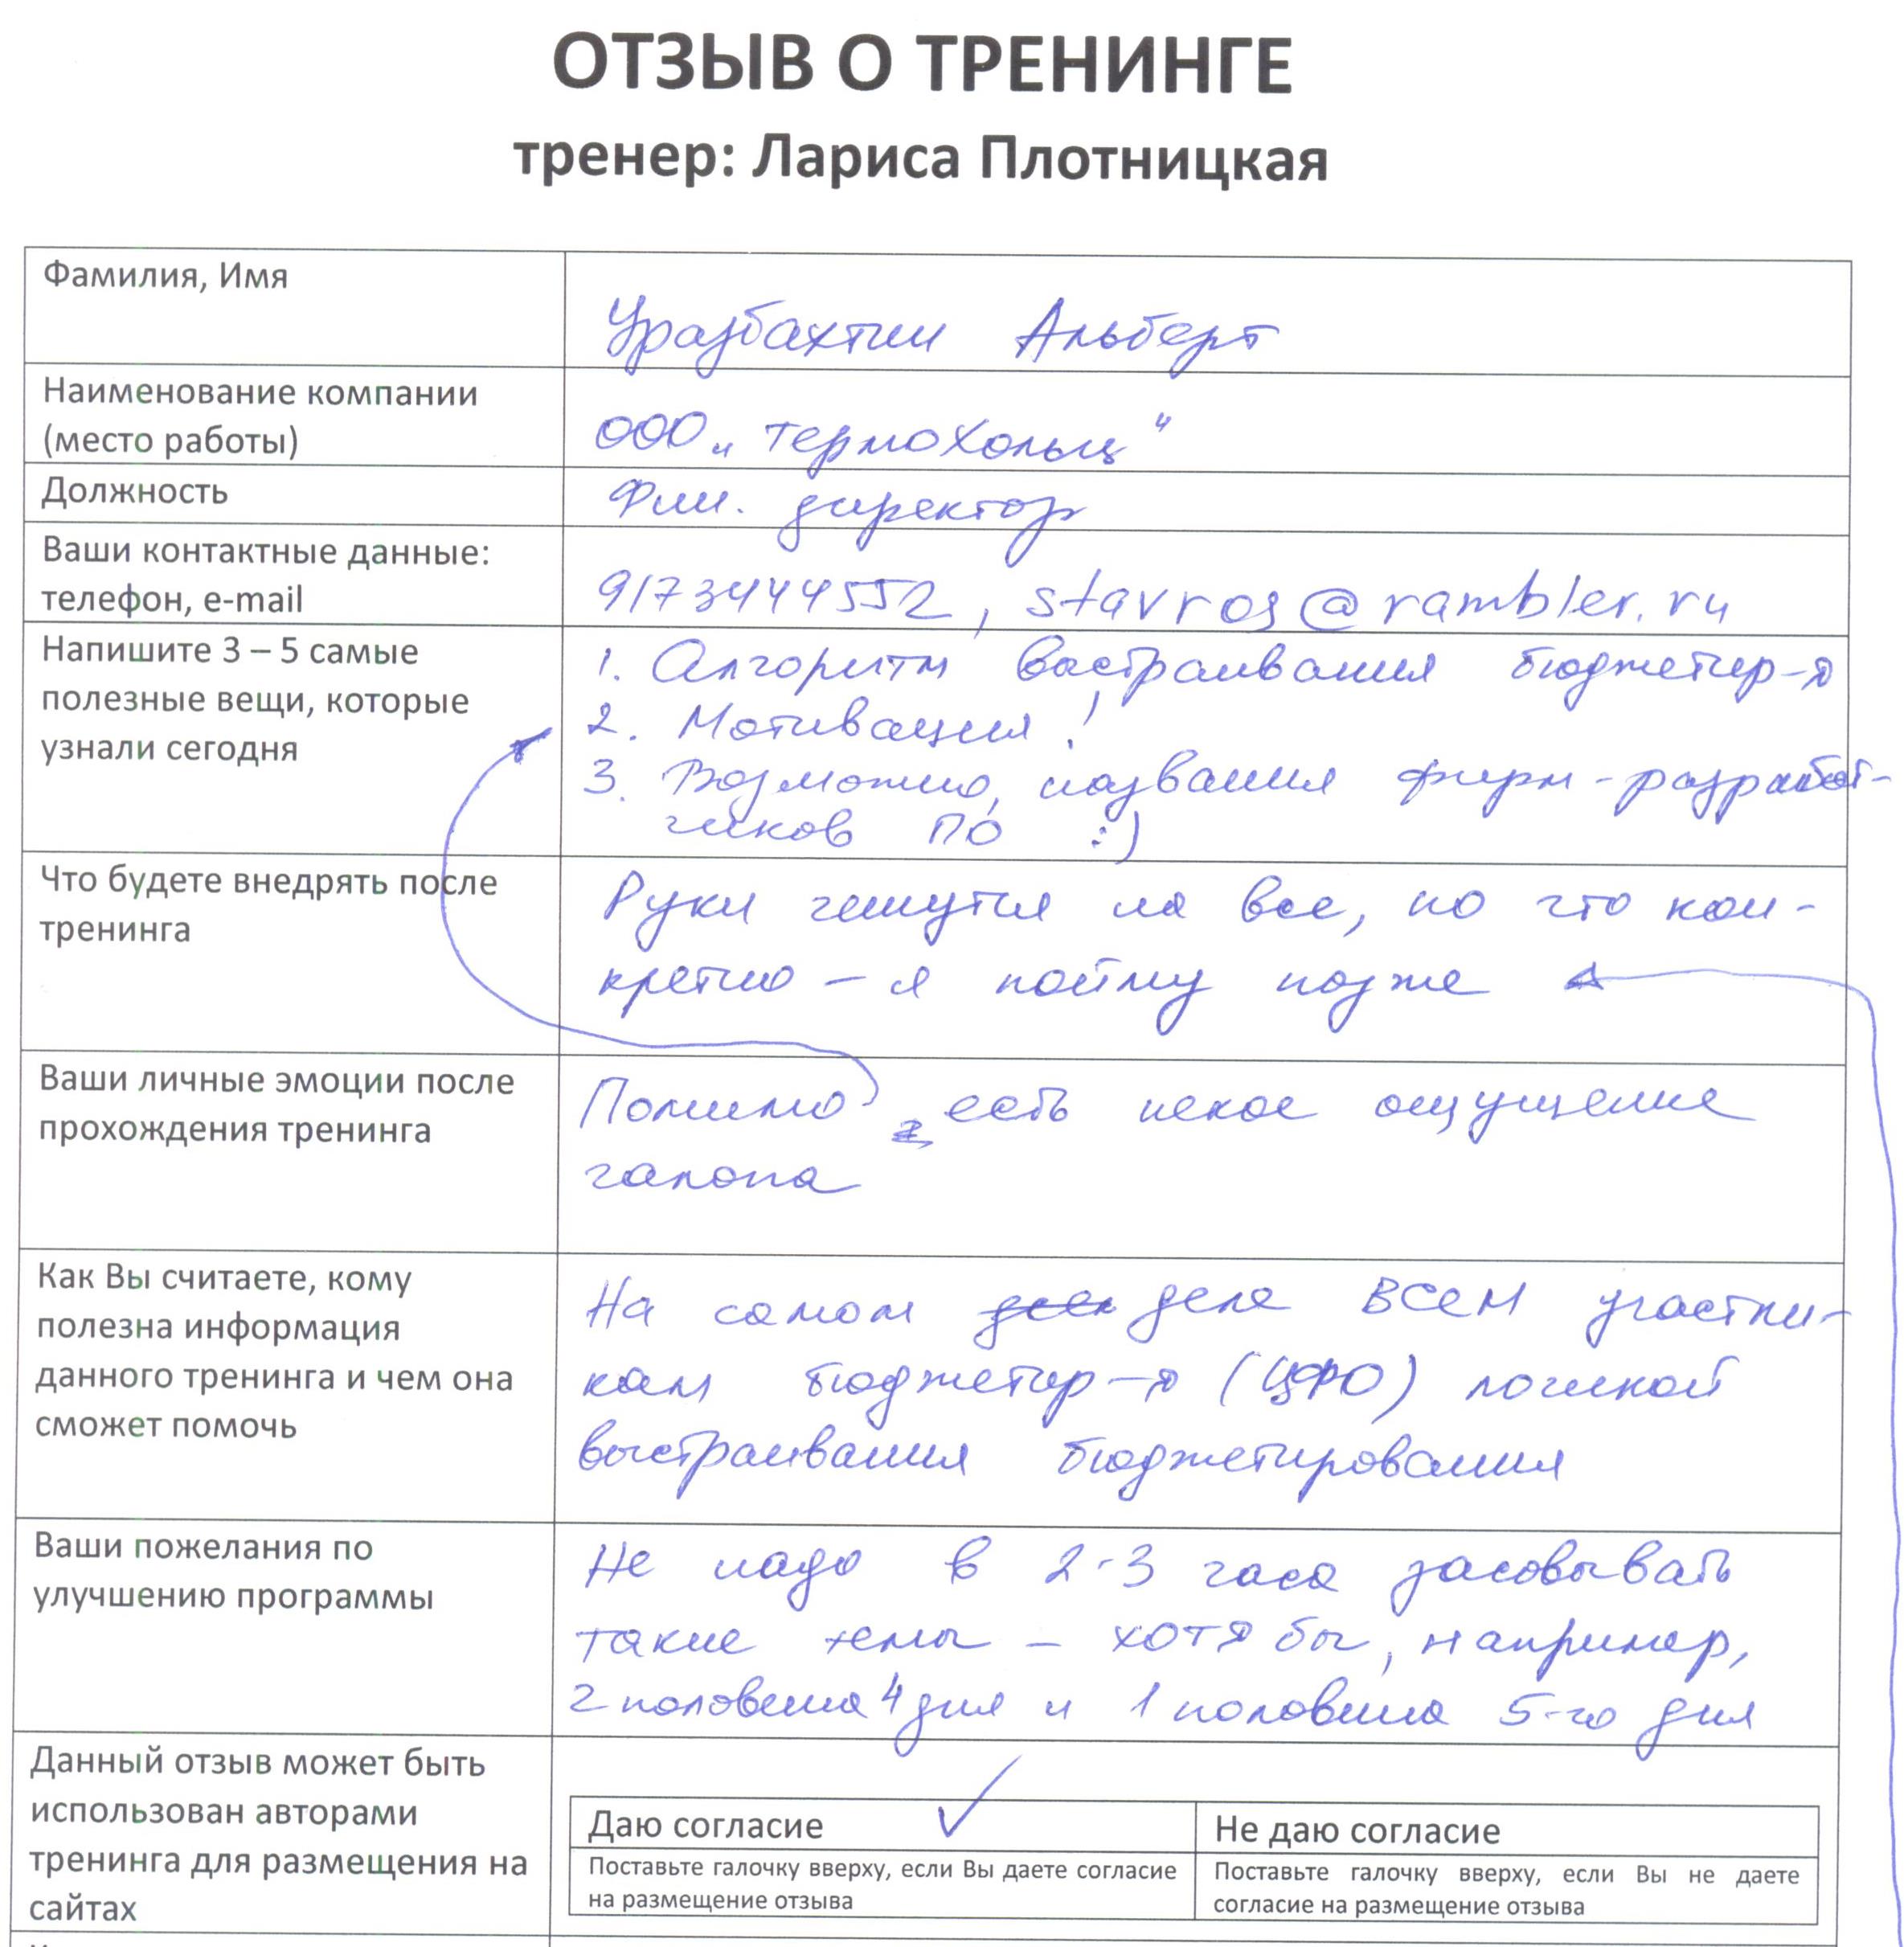 ОТЗЫВ О ТРЕНИНГЕ
тренер: Лариса Плотницкая
Фамилия, Имя
Уразбахтин Альберт
Наименование компании
(место работы)
ООО „ТермоХольц“
Должность
Фин. директор
Ваши контактные данные:
телефон, e-mail
9173444552, stavros@rambler.ru
Напишите 3 – 5 самые
полезные вещи, которые
узнали сегодня
1. Алгоритм выстраивания бюджетир-я
2. Мотивация!
3. Возможно, названия фирм-разработ-
чиков ПО :)
Что будете внедрять после
тренинга
Руки чешутся на все, но что кон-
кретно – я пойму позже
Ваши личные эмоции после
прохождения тренинга
Помимо 2, есть некое ощущение
галопа
Как Вы считаете, кому
полезна информация
данного тренинга и чем она
сможет помочь
На самом деле ВСЕМ участни-
кам бюджетир-я (ЦФО) логикой
выстраивания бюджетирования
Ваши пожелания по
улучшению программы
Не надо в 2-3 часа засовывать
такие темы – хотя бы, например,
2 половина 4 дня и 1 половина 5-го дня
Данный отзыв может быть
использован авторами
тренинга для размещения на
сайтах
Даю согласие ✓
Поставьте галочку вверху, если Вы даете согласие
на размещение отзыва
Не даю согласие
Поставьте галочку вверху, если Вы не даете
согласие на размещение отзыва